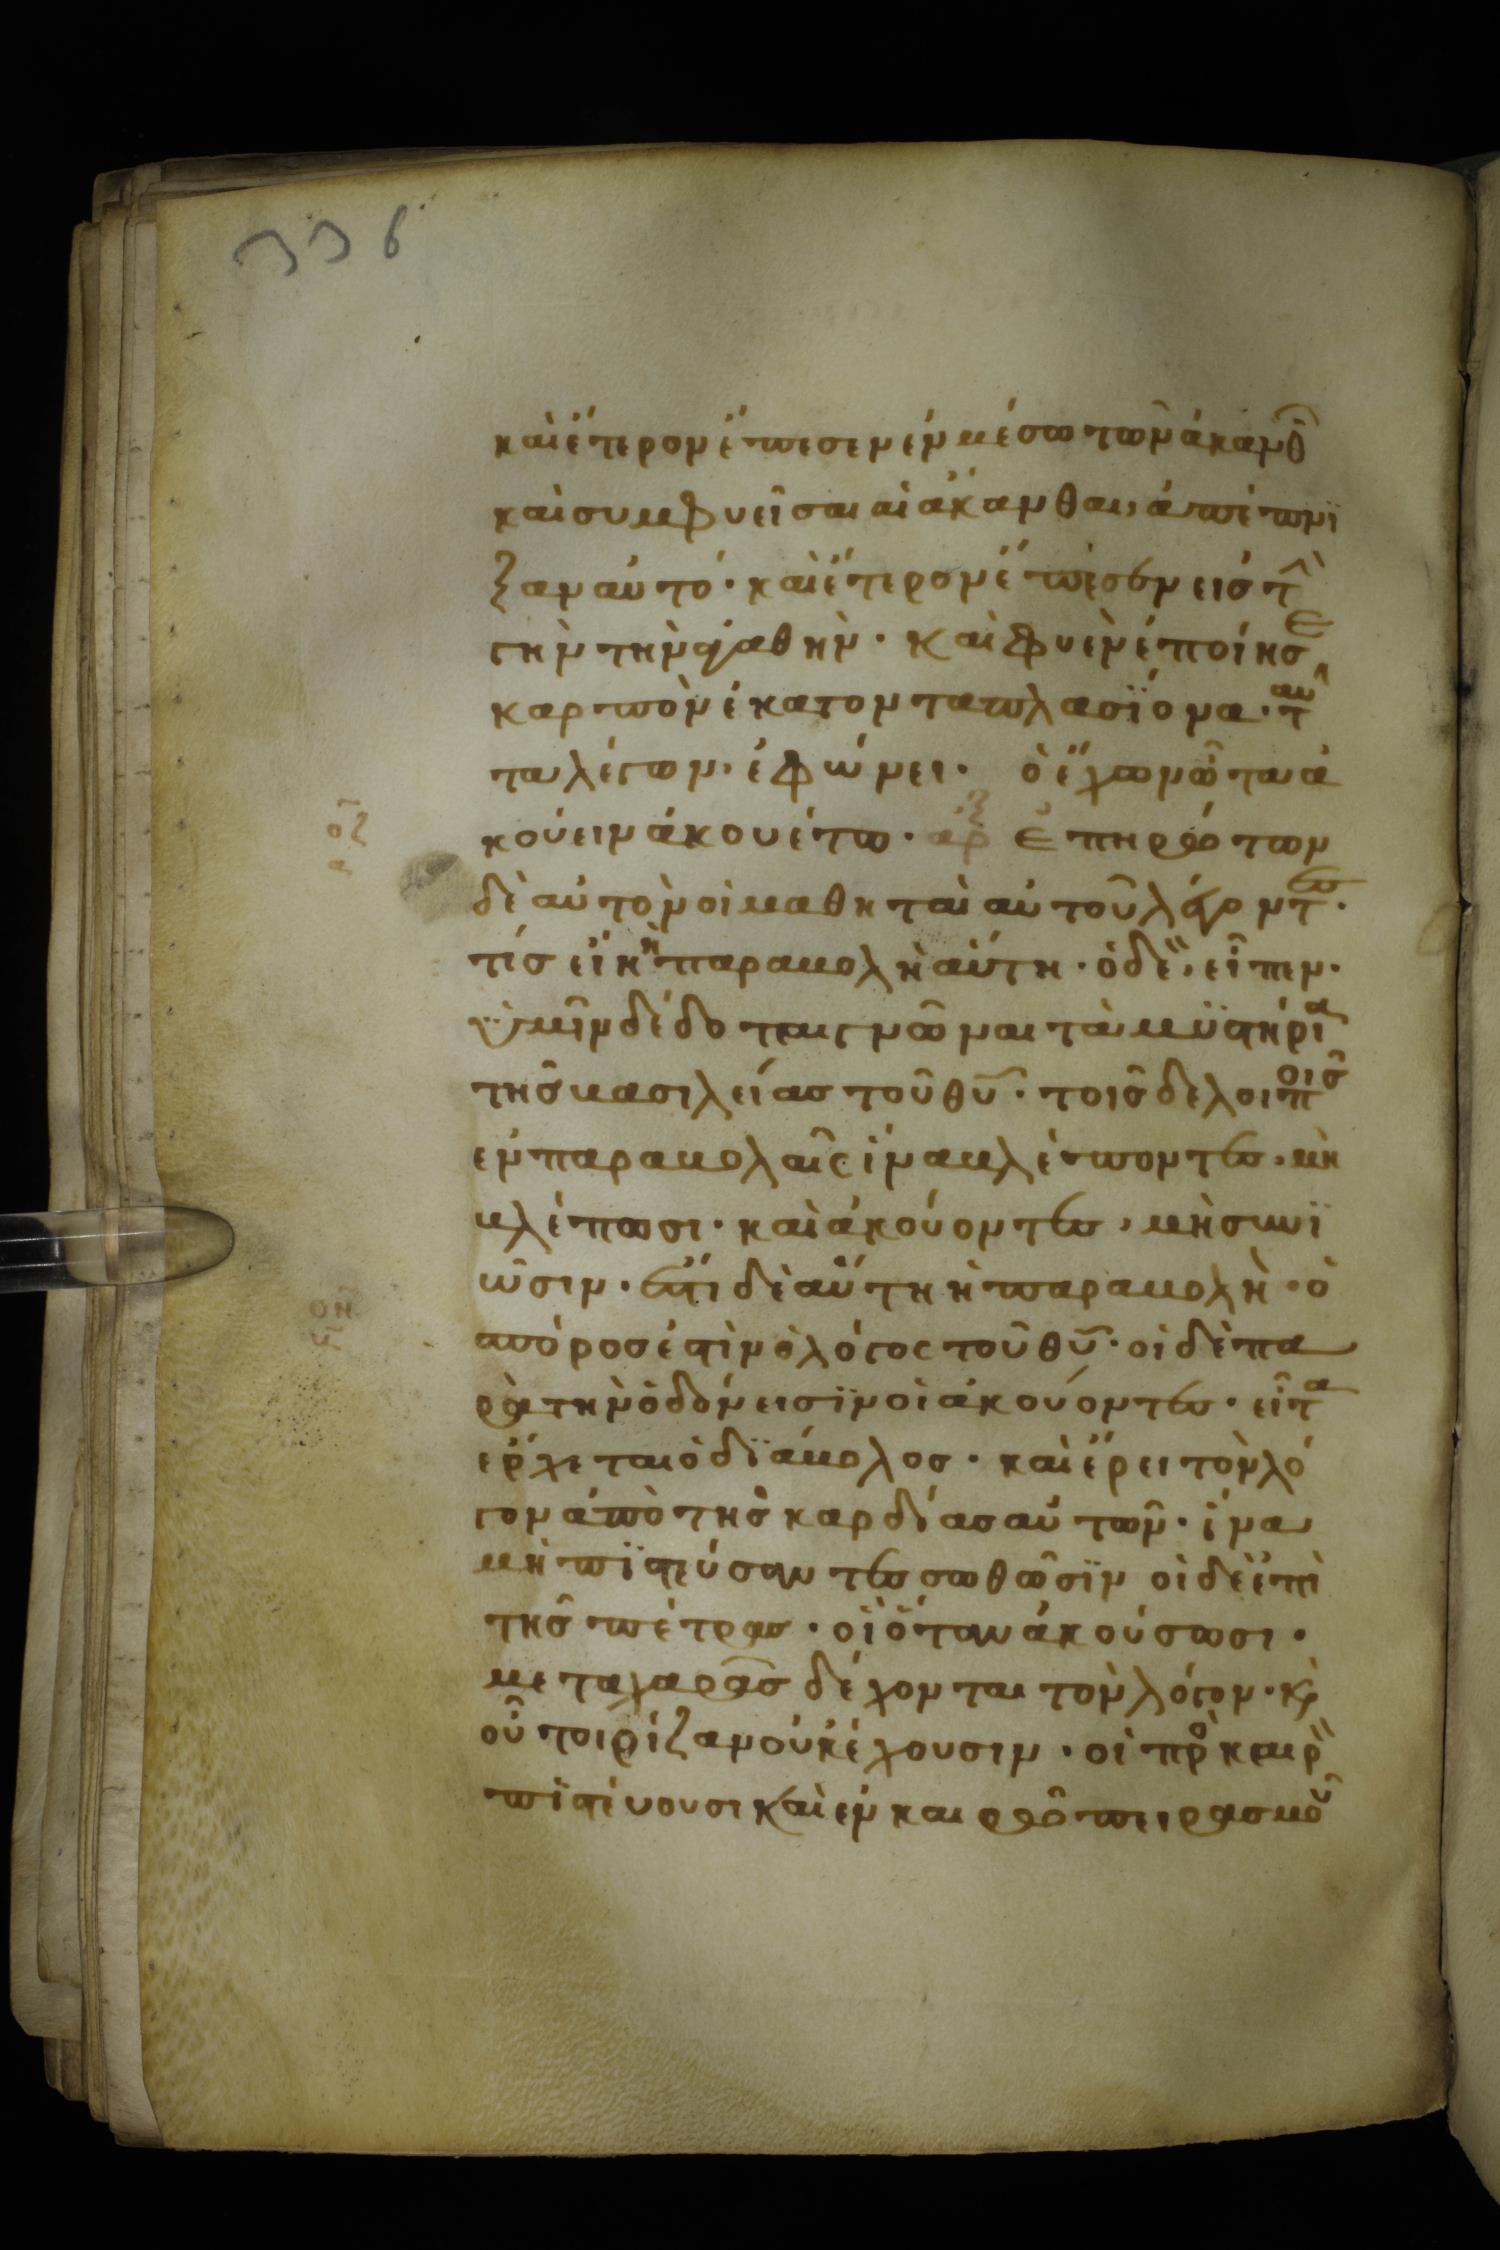 336
καὶ ἕτερον ἔπεσεν ἐν μέσω τῶν ἀκανθῶ
καὶ συμφυεῖσαι αἱ ἄκανθαι, ἀπέπνϊ
ξαν αὐτό· καὶ ἕτερον ἔπεσεν εἰς τὴ
γὴν τὴν ἀγαθήν· Καὶ φυὲν ἐποίησε
καρπὸν ἑκατονταπλασϊονα· ταῦ
τα λέγων· ἐφώνει· ὁ ἔχων ὦτα ἀ
κούειν ἀκουέτω· ἀρξ Ἐπηρώτων
οζ
α
δὲ αὐτὸν οἱ μαθηταὶ αὐτοῦ λέγοντες·
τίς εἴη ἡ παραβολὴ αὕτη· ὁ δὲ, εἶπεν·
Ὑμῖν δέδοται γνῶναι τὰ μϋστήρια
τῆς βασιλείας τοῦ θῦ· τοῖς δε λοιποῖς
ἐν παραβολαῖς ἵνα βλέποντες, μὴ
βλέπωσι· καὶ ἀκούοντες, μὴ συνϊ
ῶσιν· ἔστι δὲ αὕτη ἡ παραβολὴ· ὁ
οη
σπόρος ἐστὶν ὁ λόγος τοῦ θῦ· οἱ δὲ πα
ρὰ τὴν ὁδόν εἰσϊν οἱ ἀκούοντες· εἶτα
ἔρχεται ὁ δϊάβολος· καὶ ἔρει τὸν λό
γον ἀπὸ τῆς καρδίας αὐτῶν· ἵνα
μὴ πϊστεύσαντες σωθῶσϊν οἱ δὲ ἐπὶ
τῆς πέτρας· οἳ ὅταν ἀκούσωσι·
μετα χαρᾶς δέχονται τὸν λόγον· κ
οὗτοι ρίζαν οὐκ ἔχουσιν· οἳ πρὸς καιρὸν
πϊστέυουσι καὶ ἐν καιρῶ πειρασμοῦ